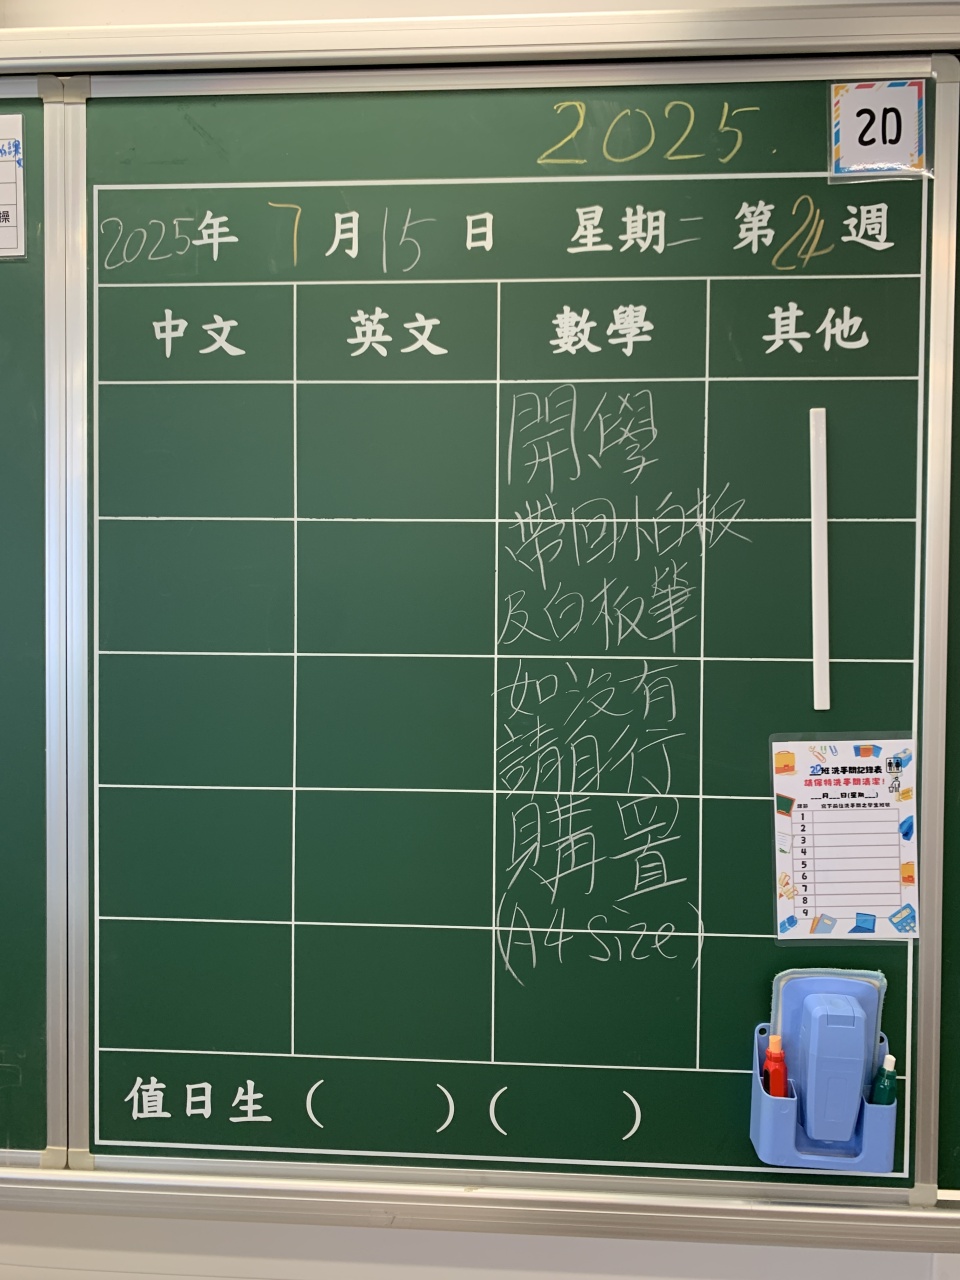 2025.
2D
2025年 7月15日 星期二 第24週
中文 英文 數學 其他
開學
帶回小白板
及白板筆
如沒有
請自行
購置
(A4 size)
2D班洗手間記錄表
請保持洗手間清潔!
___月___日(星期___)
1
2
3
4
5
6
7
8
9
值日生 ( ) ( )
課
操